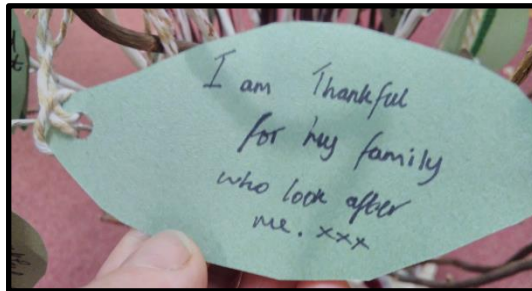 I am Thankful
for my family
who look after
me. xxx